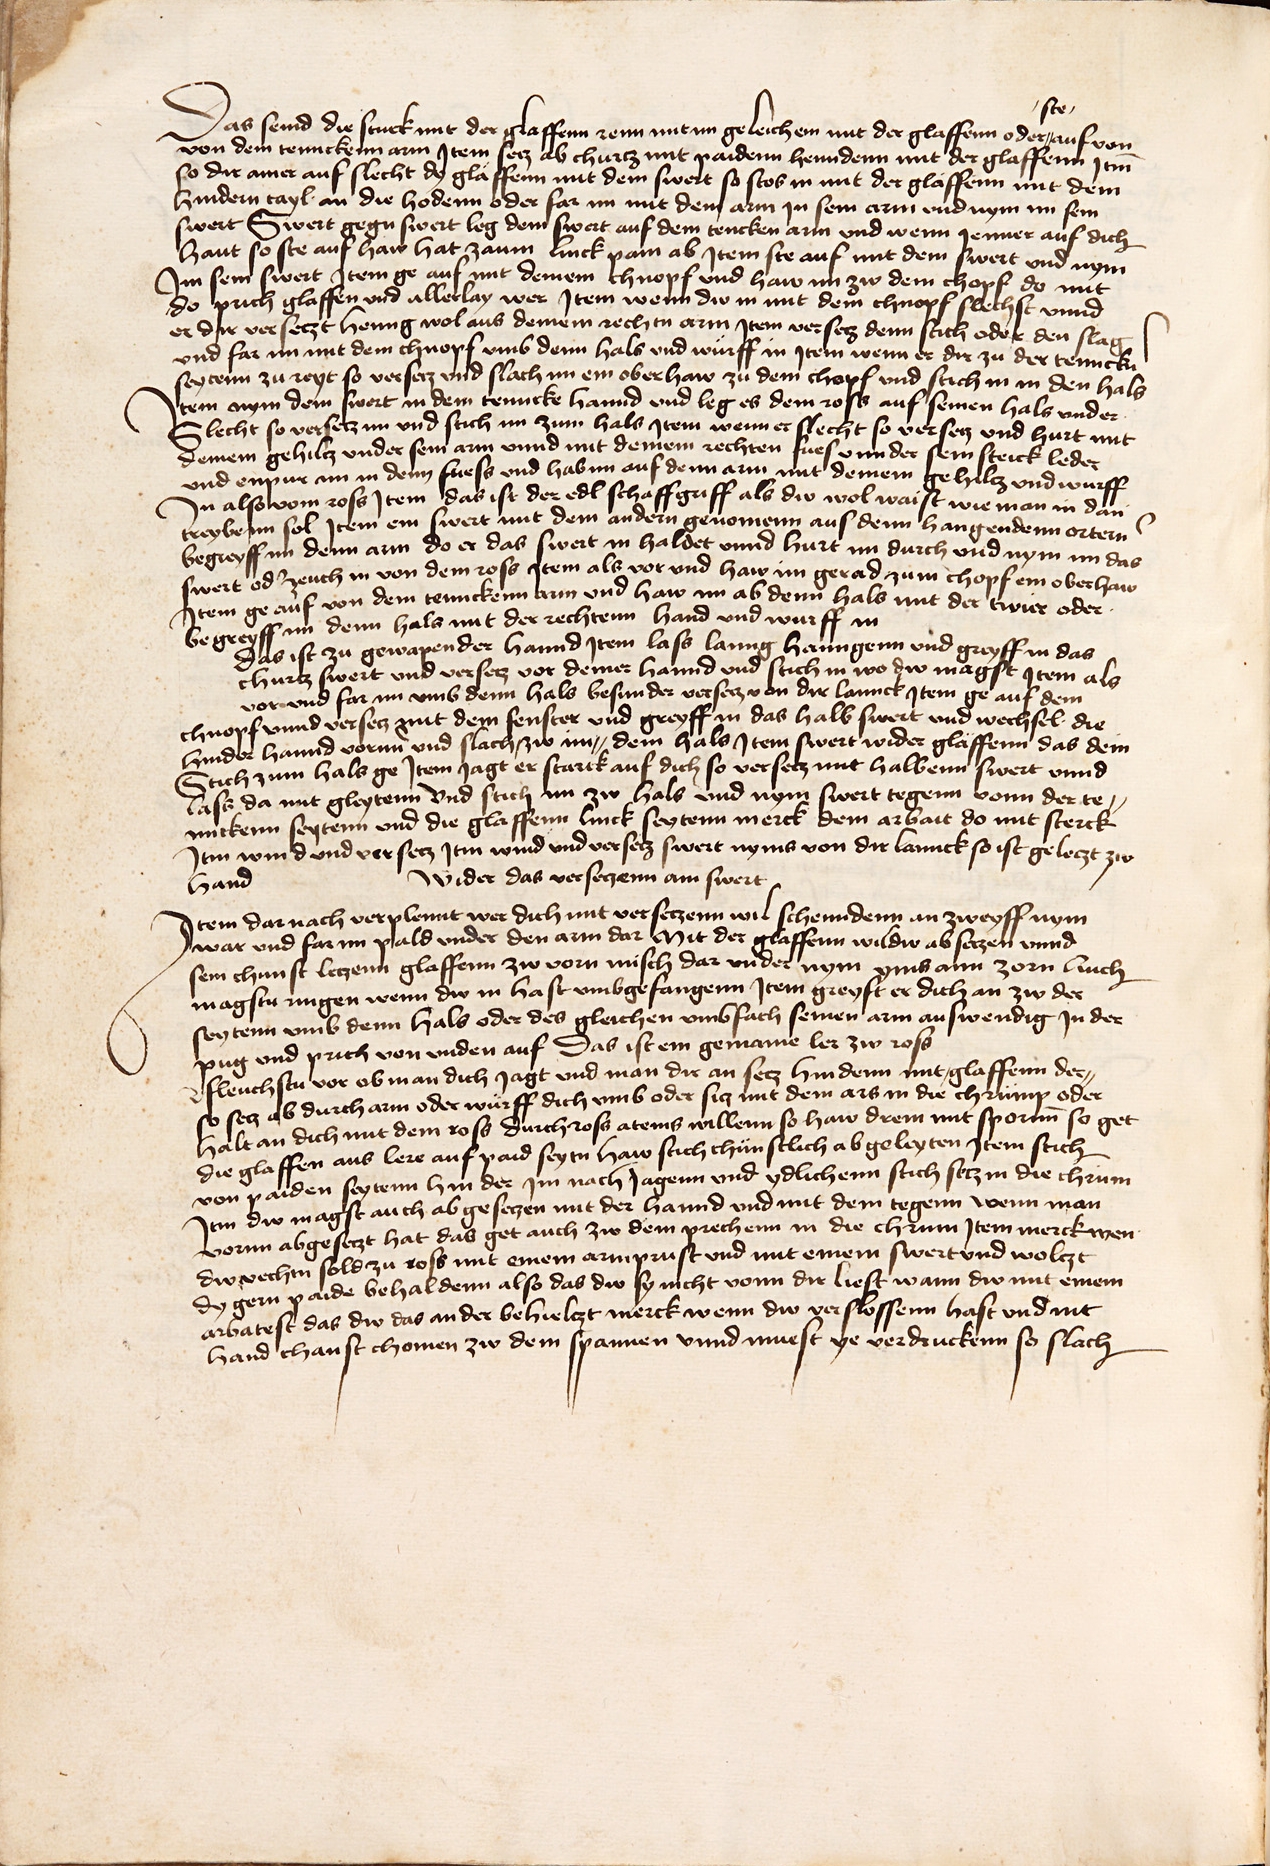 ste
Das seind die stuck mit der glaffenn renn mit im geleichem mit der glaffenn oder auf von
von dem tennckenn arm Item setz ab churtz mit paidenn henndenn mit der glaffenn Itm̄
so dir ainer auf slecht dy glaffenn mit dem swert so stos in mit der glaffenn mit dem
hindern tayl an die hodenn oder far im mit dem arm in sein arm und nym im sein
swert Swert gegn swert leg dein swert auf dem tencken arm und wenn Jenner auf dich
haut so ste auf haw hat zaum linck pain ab Item ste auf mit dem swert und nym
Im sein swert Item ge auf mit deinem chnopf und haw im zw dem chopf do mit
do prich glaffen und allerlay wer Item wenn dw in mit dem chnopf slechst unnd
er dir versetzt heng wol aus deinem rechtn arm Item versetz denn stich oder den slag
und far im mit dem chnopf umb denn hals und würff in Item wenn er dir zu der tennckn
seytenn zu reyt so versetz und slach im ein oberhaw zu dem chopf und stich in in den hals
Item nym dein swert in dein tenncke hannd und leg es dem ross auf seinen hals under
Slecht so versetz im und stich im zum hals Item wenn er slecht so versetz und hurt mit
deinem gehiltz under sein arm unnd mit deinem rechten fues unnder sein steick leder
und enpur im in dem fuess und hab im auf denn arm mit deinem gehiltz und wurff
In also vom ross Item das ist der edl schaffgriff als dw wol waist wie man in dan
treybenn sol Item ein swert mit dem andern genomenn aus denn hangendenn ortern
begreyff im denn arm do er das swert in haldet unnd hurt im durch und nym im das
swert od' zeuch in von dem ross Item als vor und haw im gerad zum chopf ein oberhaw
Item ge auf von dem tennckenn arm und haw im ab denn hals mit der twier oder
begreyff im denn hals mit der rechtenn hand und wurff in
Das ist zu gewapender hannd Item lass lanng henngenn und greyff in das
churtz swert und versetz vor deiner hannd und stich in wo dw magst Item als
vor und far im umb denn hals besunder versetz von dir lannck Item ge auf dem
chnopf unnd versetz mit dem fenster und greyff in das halb swert und wechsel die
hinder hannd vornn und slach zw im dem hals Item swert wider glaffenn das dein
Stich zum hals ge Item Jagt er starck auf dich so versetz mit halbenn swert unnd
lass da mit gleytenn Und stich im zw hals und nym swert tegenn vonn der te
nnckenn seytenn und die glaffenn linck seytenn merck dein arbait do mit sterck
Itm wind und versetz Itm wind und versetz swert nyms von dir lannck so ist geletzt zw
hand Wider das versetzenn am swert
Item dar nach verplennt wer dich mit versetzenn wil schenndenn an zweyff nym
war und far im pald under den arm dar Mit der glaffenn wildw absetzen unnd
sein chunst letzenn glaffenn zw vorn misch dar under nym yms ann zorn linch
magstu ringen wenn dw in hast umbgefangenn Item greyft er dich an zw der
seytenn umb denn hals oder des gleichen umbfach seinen arm auswendig In der
pug und prich von unden auf Das ist ein gemaine ler zw ross
Fleuchstu vor ob man dich Jagt und man dir an setz hindenn mit glaffenn der
so setz ab durch arm oder würff dich umb oder sitz mit dem ars in die chrump oder
halt an dich mit dem ross durch ross atems willenn so haw drein mit sporn̄ so get
die glaffen aus lere auf paid seytn haw stich chünstlich ab geleyten Item stich
von paiden seytenn hinder im nach Jagenn und ydlichenn stich setz in die chrum
Itm dw magst auch ab gesetzen mit der hannd und mit dem tegenn wenn man
vornn abgesetzt hat das get auch zw dem prechenn in die chrum Item merck wen
dw vechtn sold zu ross mit einem armprust und mit einem swert und woltzt
dy gern paide behaldenn also das dw sy nicht vonn dir liest wann dw mit einem
arbatest das dw das ander behieltzt merck wenn dw verslossenn hast und nit
hand chanst chomen zw dem spannen unnd muest ye verdruckenn so slach